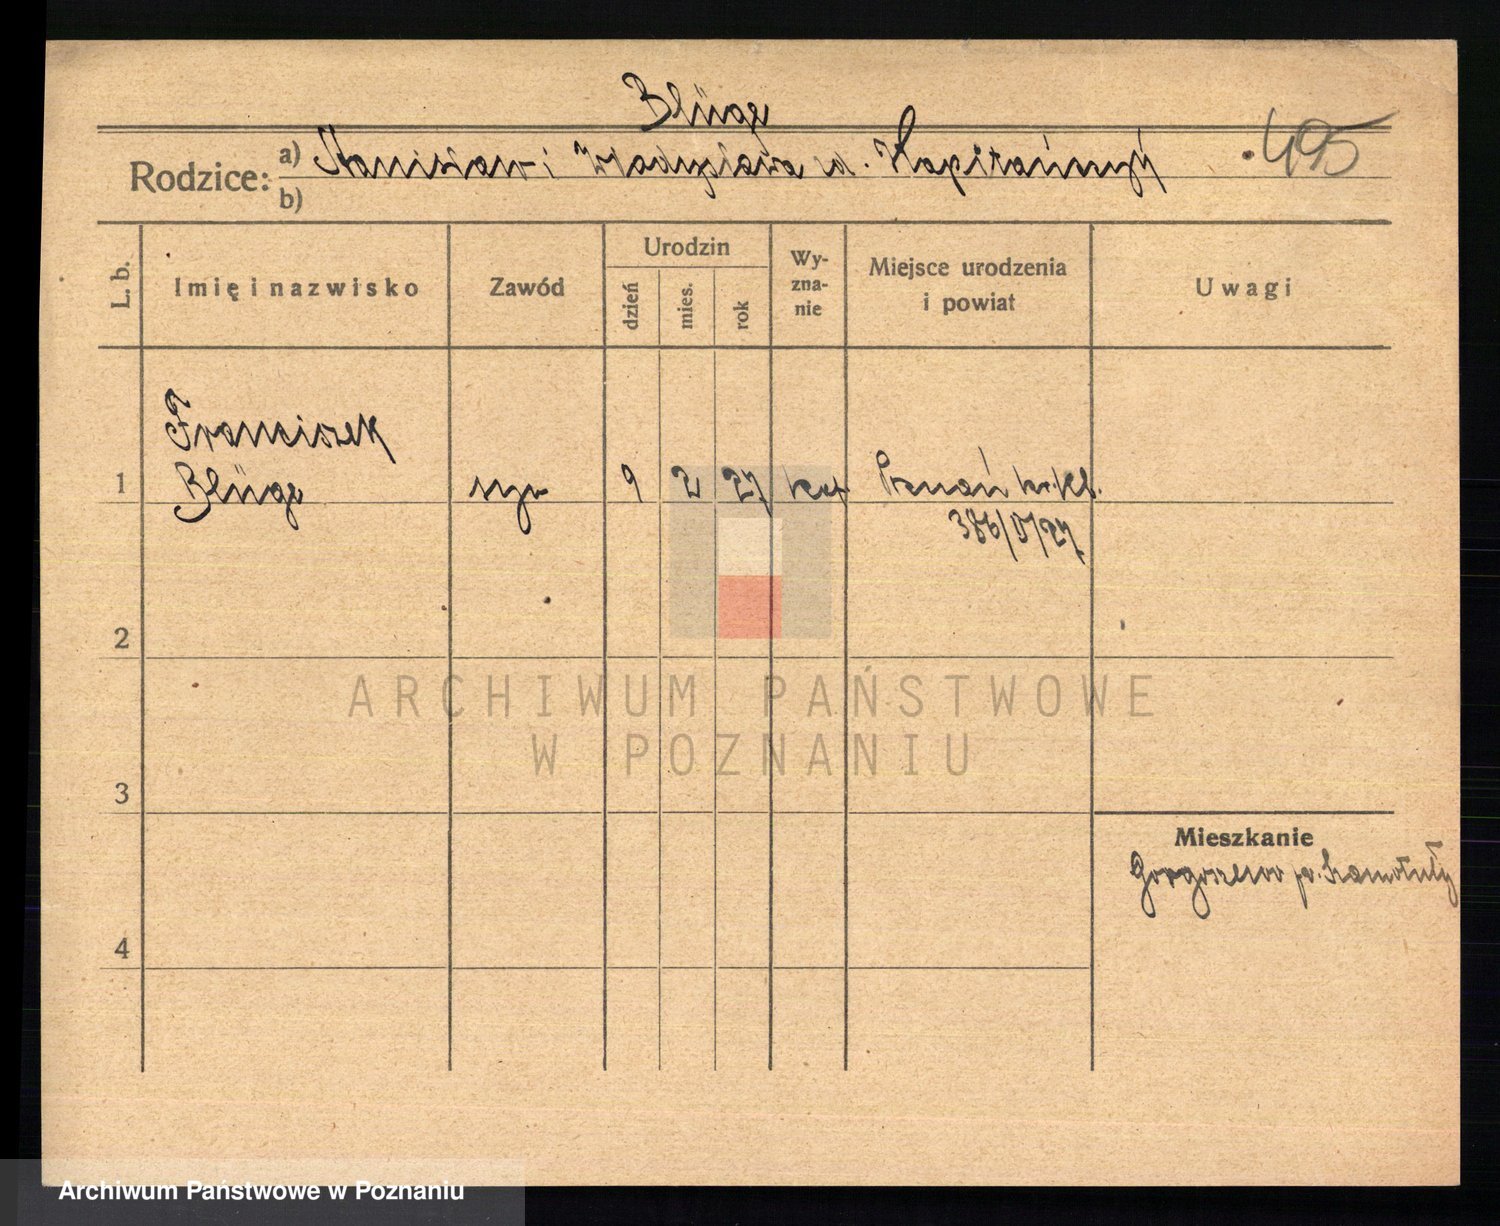 Blüge
Rodzice: a) Stanisław i Władysława ud. Kapitańczyk 495
b)
L. b. Imię i nazwisko Zawód Urodzin Wy-zna-nie Miejsce urodzenia i powiat Uwagi
dzień mies. rok
Franciszek
1 Blüge syn 9 2 27 kat Poznań
386/V/27
2
ARCHIWUM PAŃSTWOWE
W POZNANIU
3
Mieszkanie
Gorgoszewo p. Szamotuły
4
Archiwum Państwowe w Poznaniu